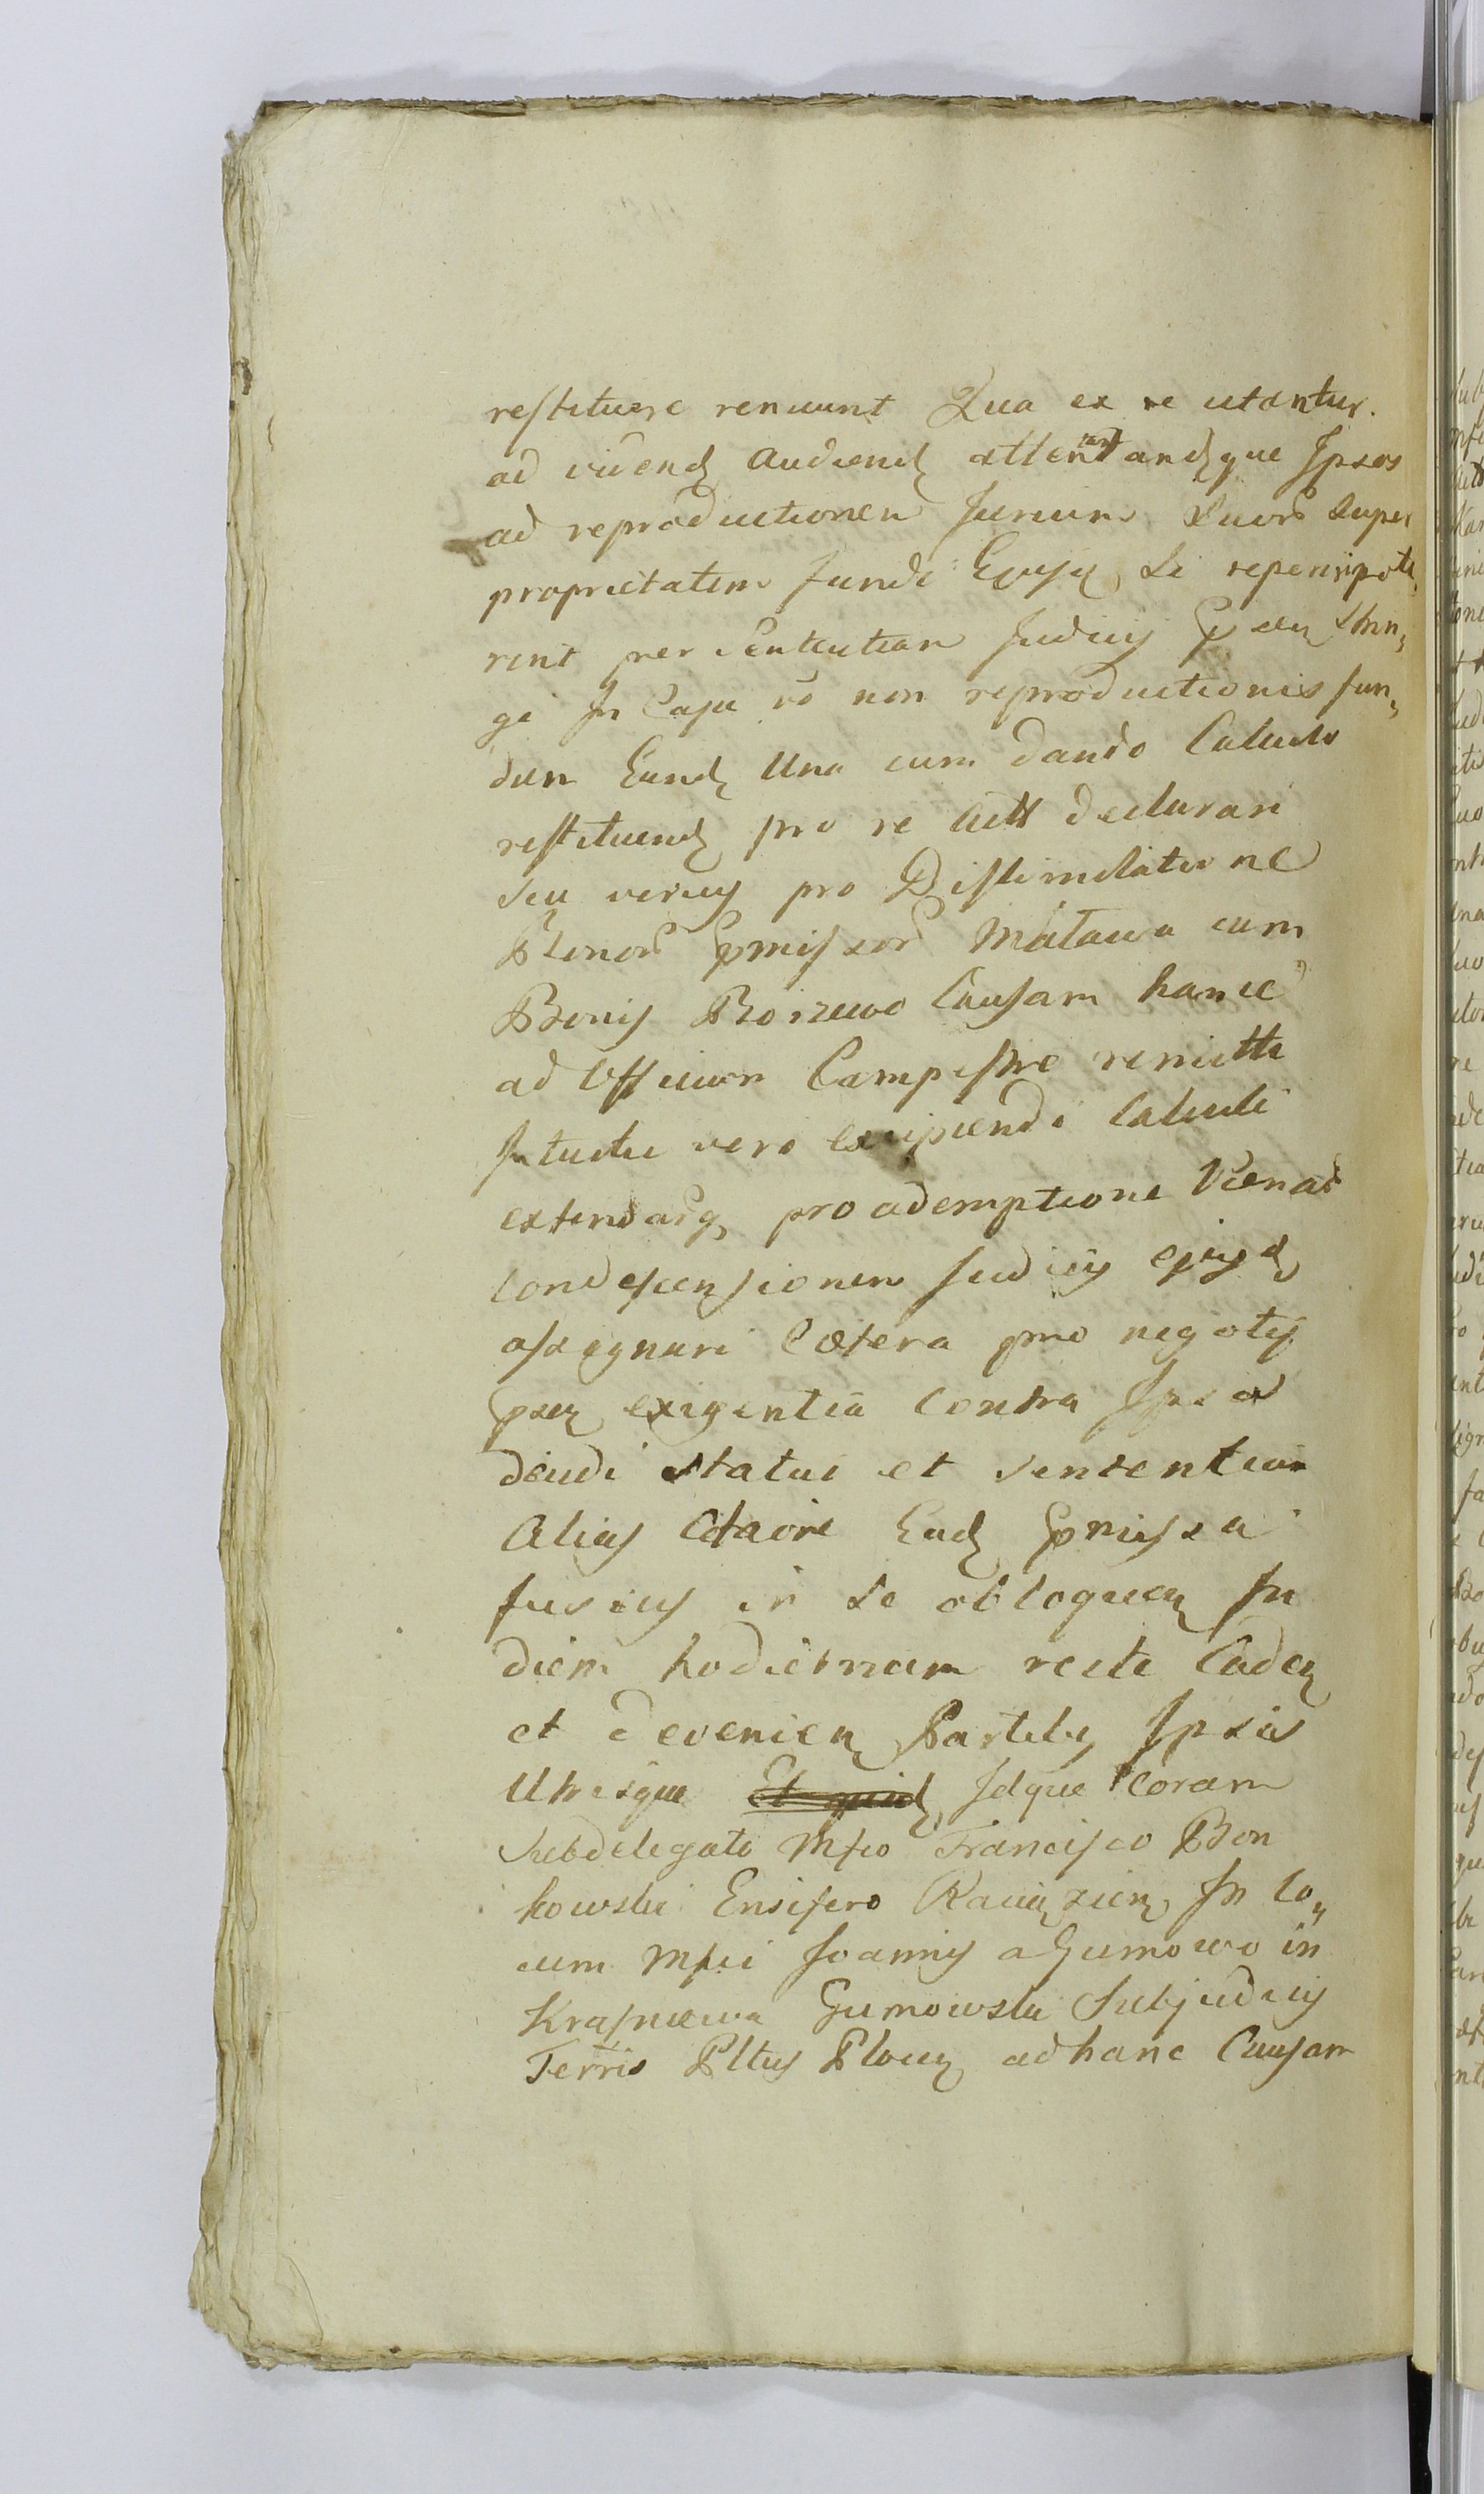 restituere renuunt Qua ex re citantur.
ad vidend audiend attentandque Ipsos
ad reproductionem Jurium Suor̃ super
proprietatem fundi Ejusd Si reperiri pote,
rint per Sententiam Judicij Strin,
gi In Casu vō non reproductionis fun,
dum Eund Una cum dando Calculo
restituend pro re declarari
seu verius pro Distimitatione
Bonor̃ pmissor̃ Mlatawa cum
Bonis Borzewo Causam hanc
ad Officium Campestre remitti
Intuitu vero excipiendi Calculi
extendãq pro ademptione
Condescensionem Judicij ejusd
assignari Cætera pro negotij
exigentia contra Ipsos
statui et sententiari
Alias Citaōne Ead pmissa
fusius in se obloquen In
diem hodiernam recte Caden
et devenien Partibus Ipsis
Utrisque Et quid Idque Coram
Subdelegato Mfco Francisco Bon
kowski Ensifero Raciązien In lo,
cum Mfci Joannis a Gumowo in
Krasniewa Gumowski Subjudicis
Terris Pltus Plocen ad hanc Causam